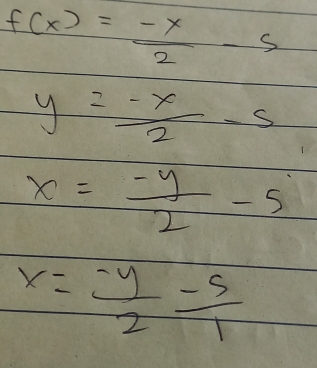 f(x) = -x/2 - 5
y = -x/2 - 5
x = -y/2 - 5
x = -y/2 - 5/1